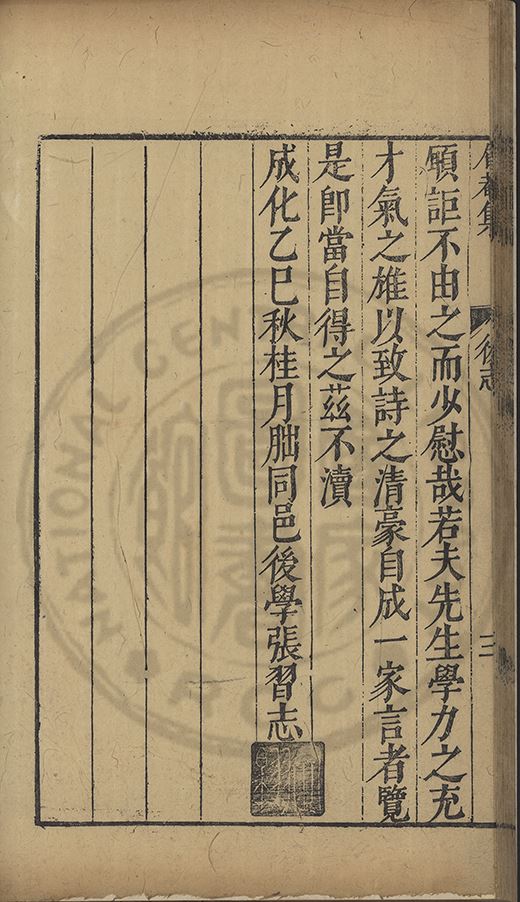 集
後志
三
願詎不由之而少慰哉若夫先生學力之充
才氣之雄以致詩之清豪自成一家言者覽
是卽當自得之茲不瀆
成化乙巳秋桂月朏同邑後學張習志